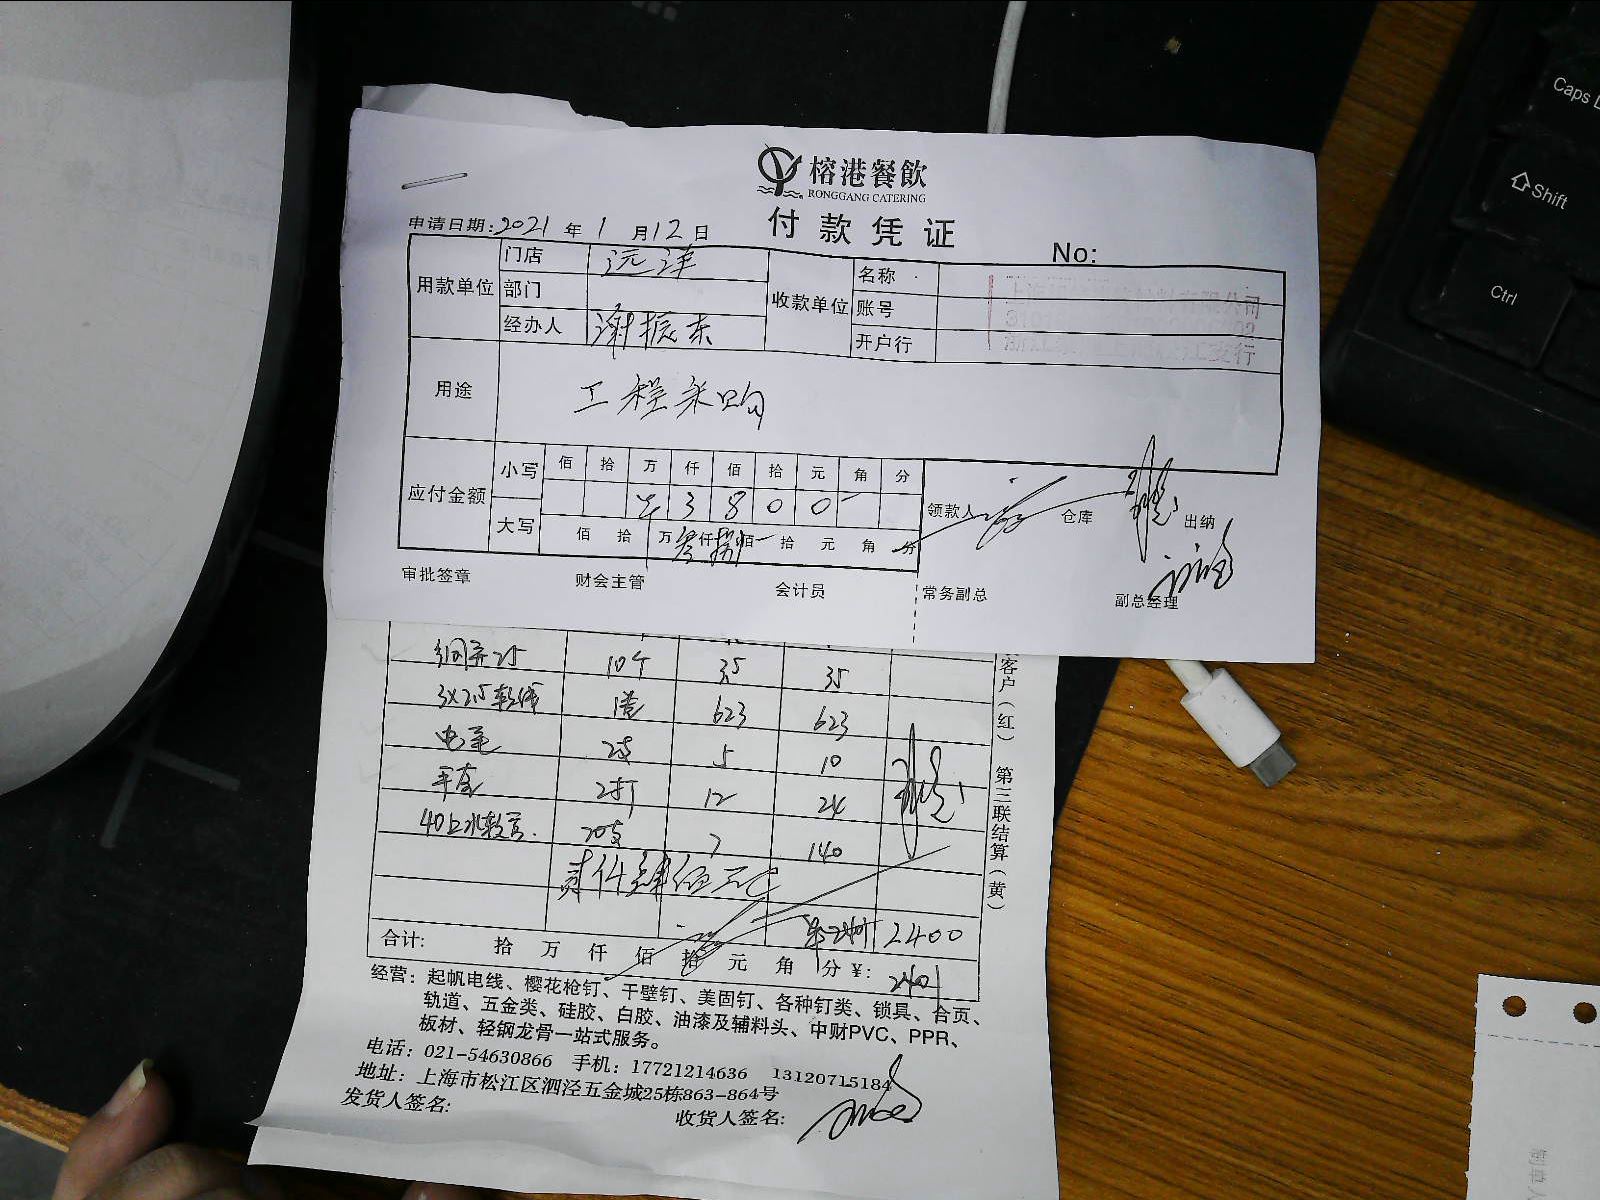 榕港餐飲
RONGGANG CATERING
付款凭证
申请日期:2021年1月12日
No:
用款单位 门店 远洋
部门
经办人 谢振东
收款单位 名称
账号
开户行
用途 工程采购
应付金额 小写 佰 拾 万 仟 佰 拾 元 角 分
¥ 3 8 0 0 -
大写 佰 拾 万 叁 仟 捌 佰 拾 元 角 分
领款人 仓库 出纳
审批签章 财会主管 会计员 常务副总 副总经理
25 10个 35 35
3×2.5软线 1卷 623 623
2支 5 10
2 12 24
40上水软管 20支 7 140
贰仟肆佰元
2400
合计: 拾 万 仟 佰 拾 元 角 分 ¥: 2401
客户(红) 第三联结算(黄)
经营:起帆电线、樱花枪钉、干壁钉、美固钉、各种钉类、锁具、合页、
轨道、五金类、硅胶、白胶、油漆及辅料头、中财PVC、PPR、
板材、轻钢龙骨一站式服务。
电话:021-54630866 手机:17721214636 13120715184
地址:上海市松江区泗泾五金城25栋863-864号
发货人签名: 收货人签名:
Caps
Shift
Ctrl